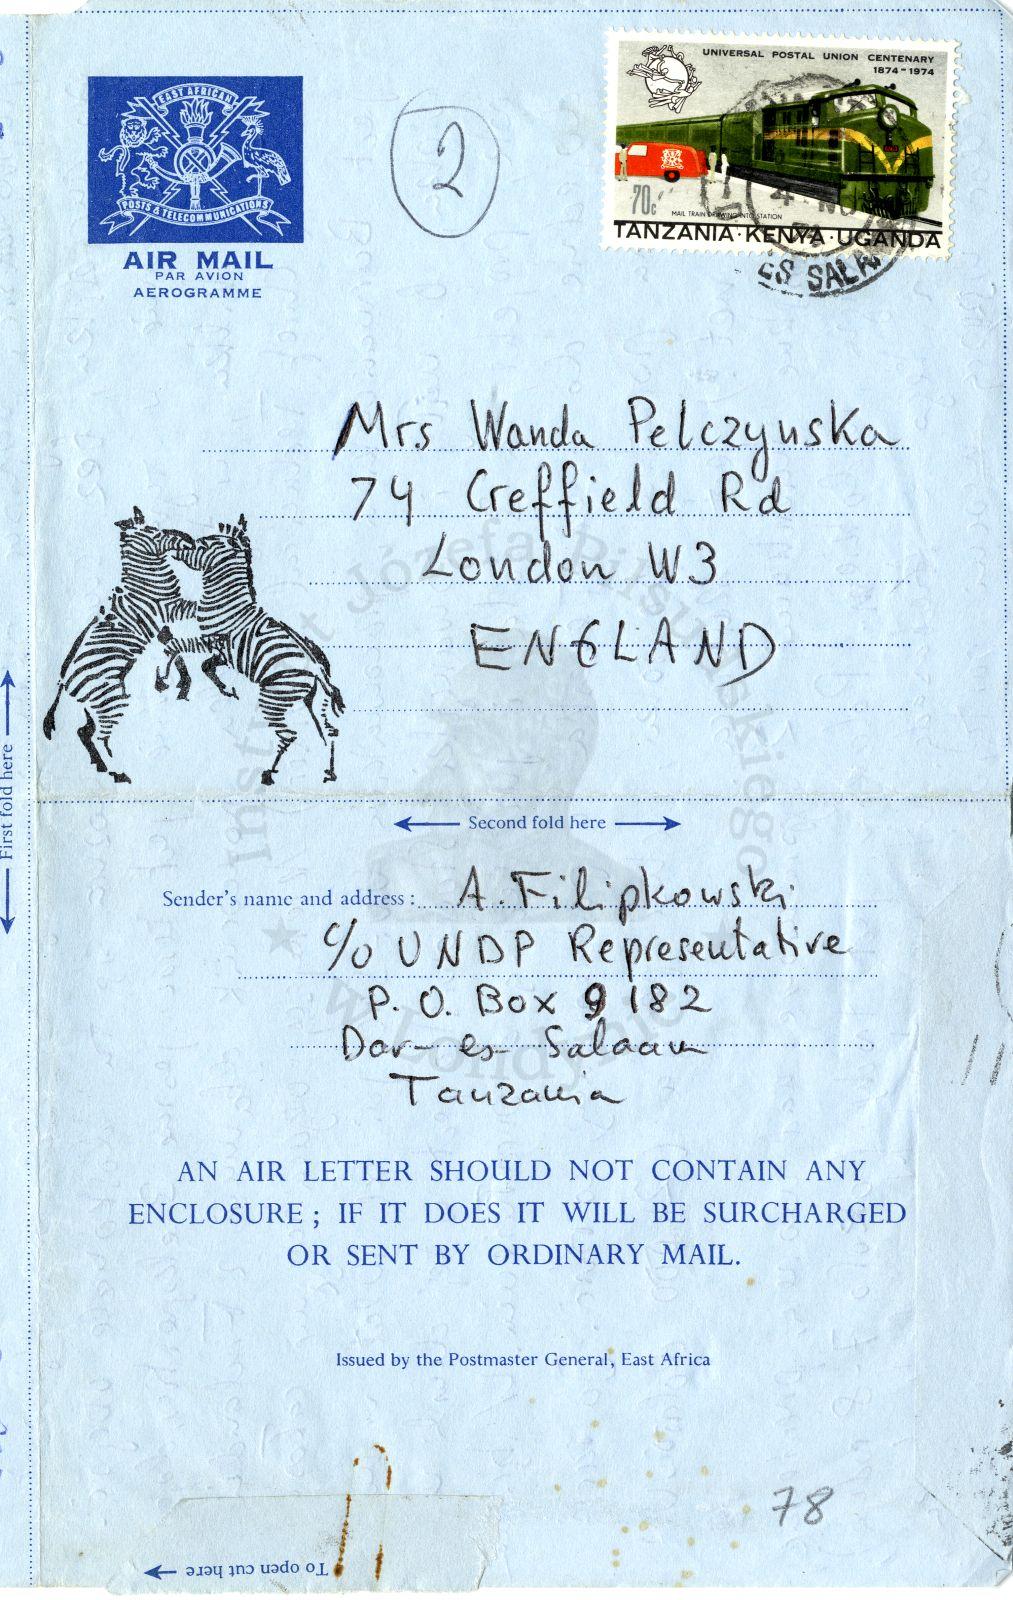 EAST AFRICAN
POSTS & TELECOMMUNICATIONS
AIR MAIL
PAR AVION
AEROGRAMME
2
UNIVERSAL POSTAL UNION CENTENARY
1874-1974
70c
MAIL TRAIN DRAWING INTO STATION
TANZANIA·KENYA·UGANDA
ES SALA
Mrs Wanda Pelczynska
74 Creffield Rd
London W3
ENGLAND
First fold here
Second fold here
Sender's name and address: A. Filipkowski
c/o UNDP Representative
P. O. Box 9182
Dar-es-Salaam
Tanzania
AN AIR LETTER SHOULD NOT CONTAIN ANY
ENCLOSURE; IF IT DOES IT WILL BE SURCHARGED
OR SENT BY ORDINARY MAIL.
Issued by the Postmaster General, East Africa
78
To open cut here
Instytut Józefa Piłsudskiego
w Londynie